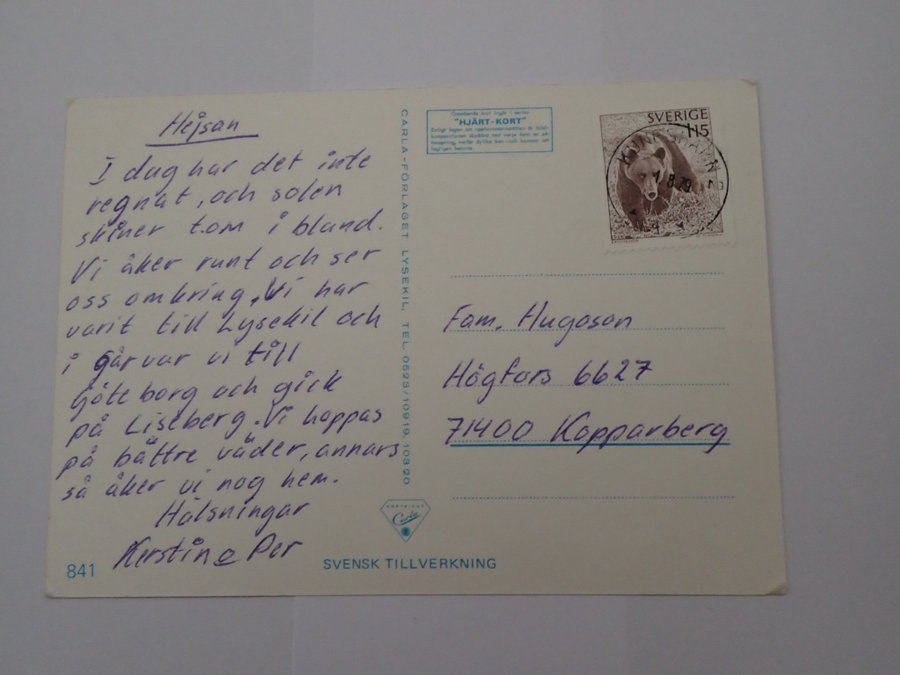 Hejsan
I dag har det inte
regnat, och solen
skiner t.om i bland.
Vi åker runt och ser
oss omkring. Vi har
varit till Lysekil och
i går var vi till
Göteborg och gick
på Liseberg. Vi hoppas
på bättre väder, annars
så åker vi nog hem.
Hälsningar
Kerstin o Per
841
CARLA-FÖRLAGET LYSEKIL, TEL. 0523/10919, 10390
Carla
SVENSK TILLVERKNING
"HJÄRT-KORT"
SVERIGE
115
KUNGSHAMN
8.79
Fam. Hugoson
Högfors 6627
71400 Kopparberg